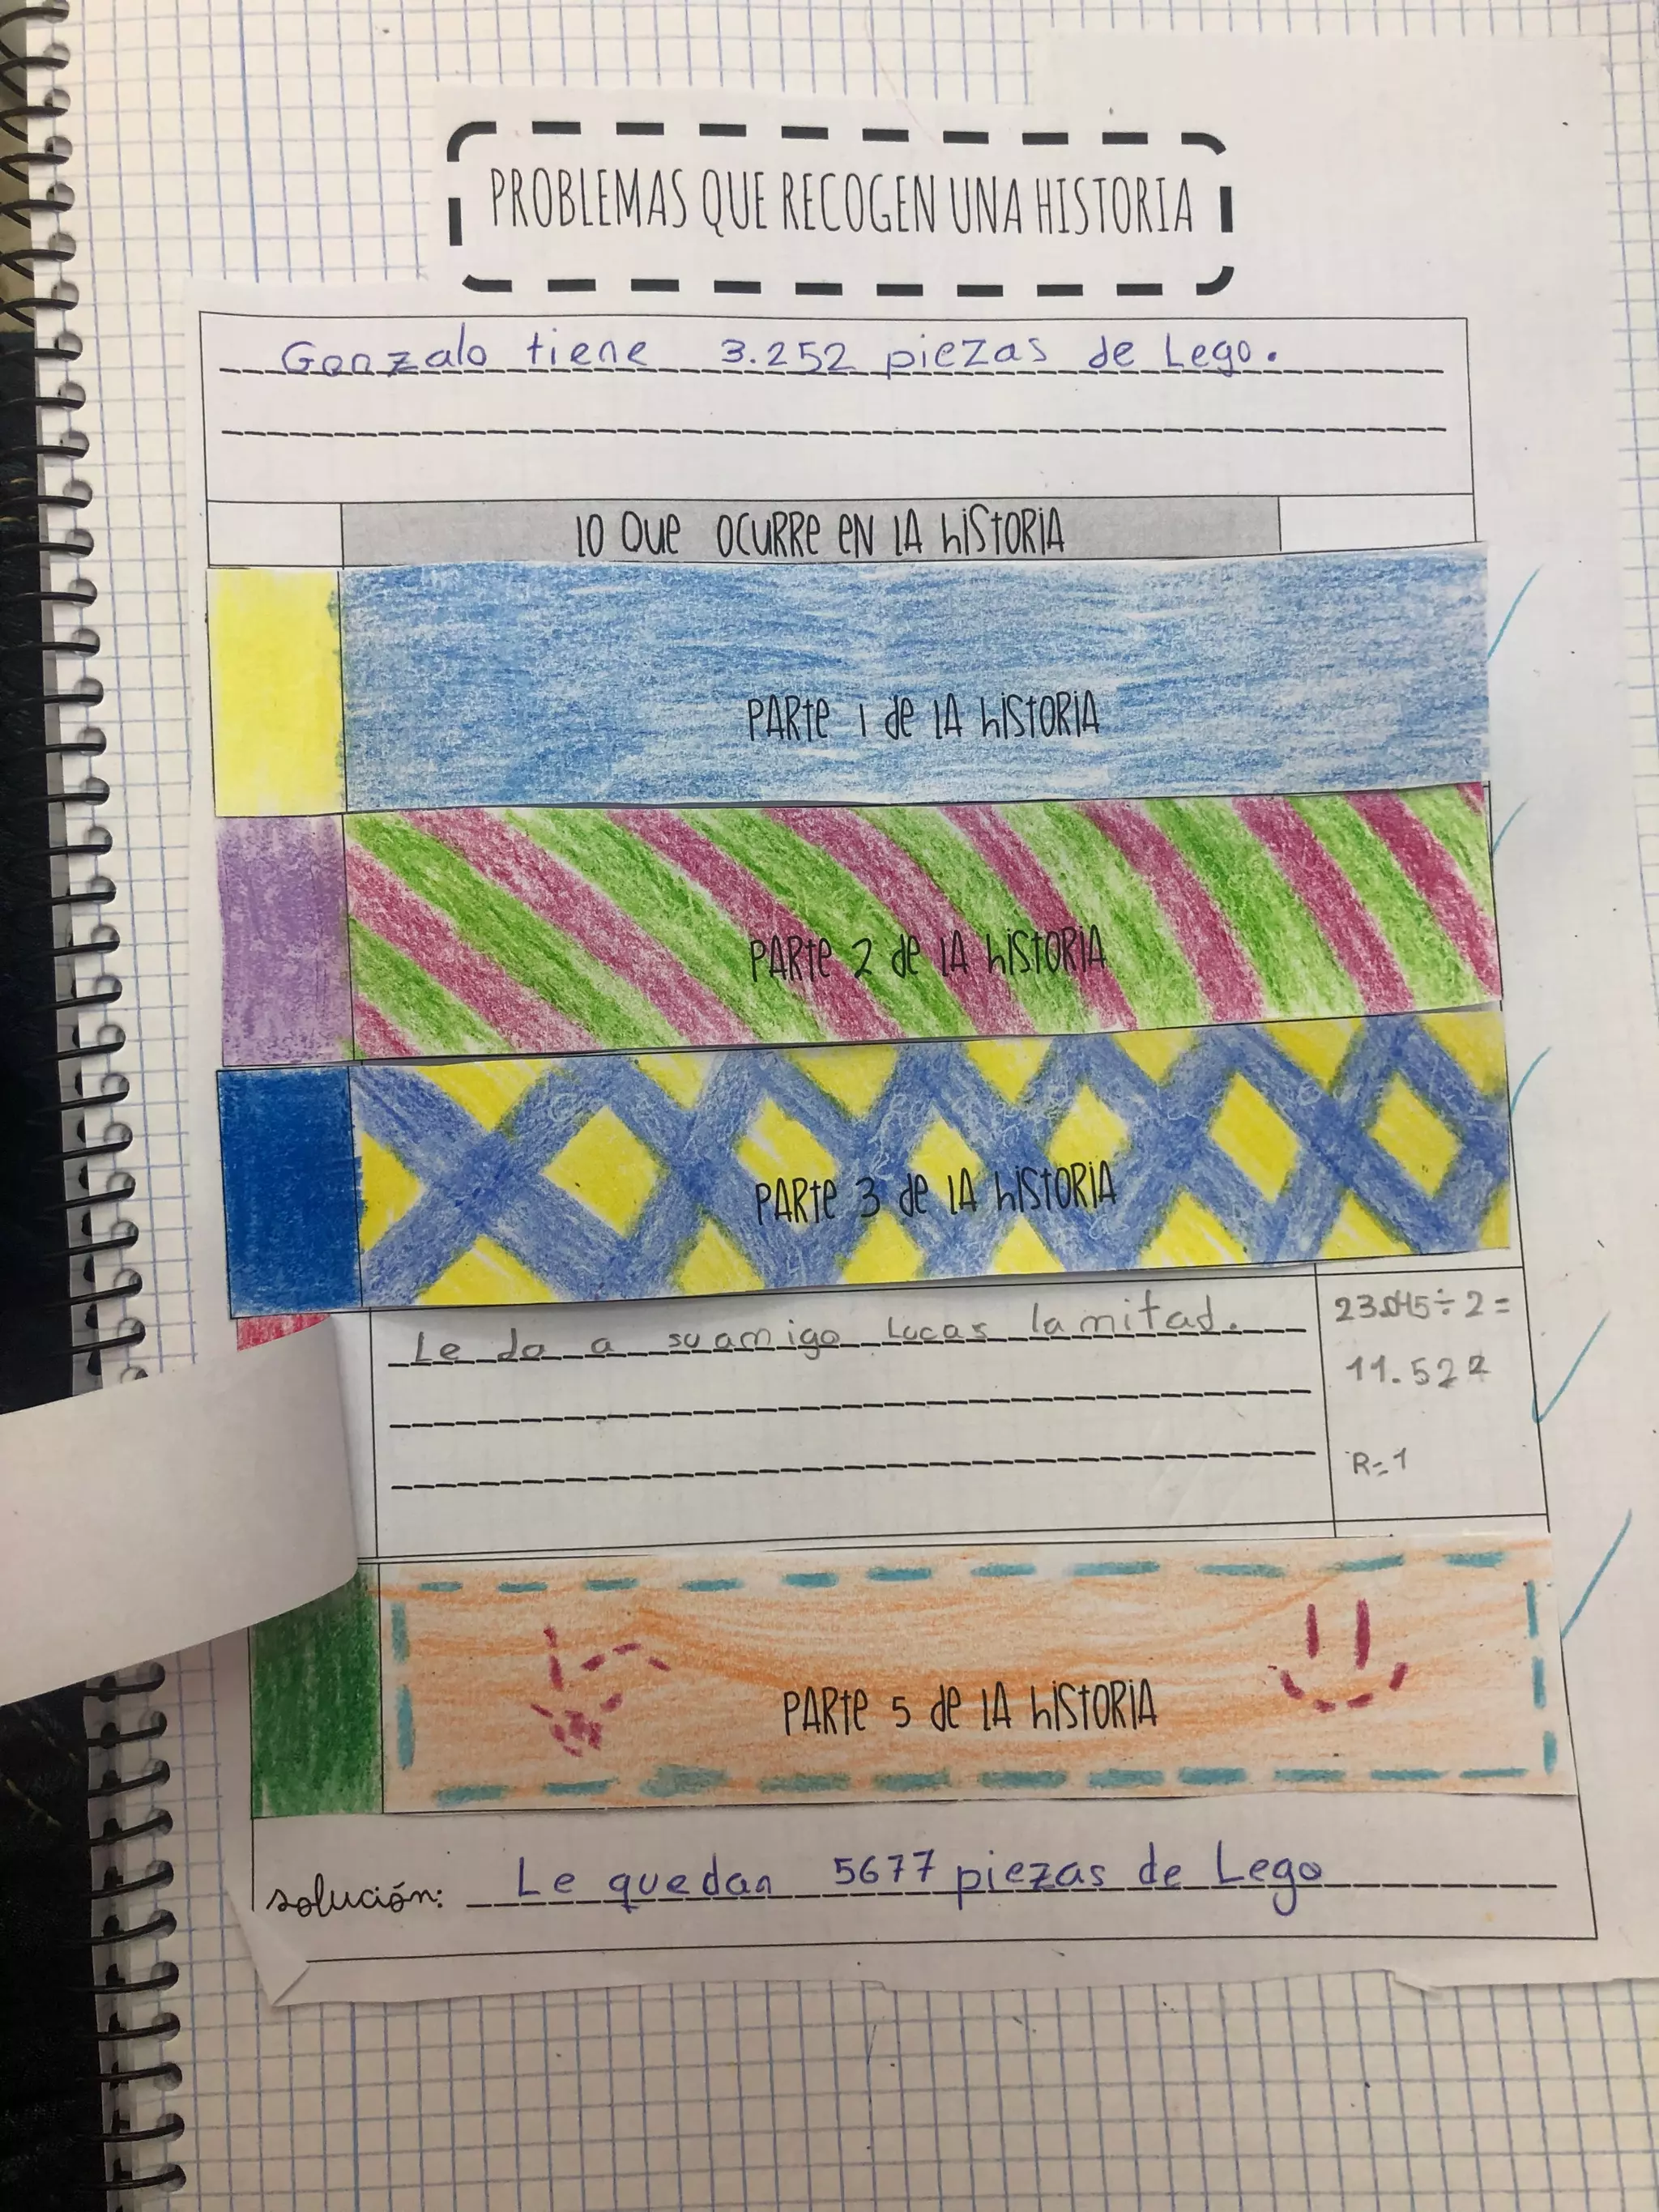 PROBLEMAS QUE RECOGEN UNA HISTORIA
Gonzalo tiene 3.252 piezas de Lego.
LO QUE OCURRE EN LA HISTORIA
PARTE 1 DE LA HISTORIA
PARTE 2 DE LA HISTORIA
PARTE 3 DE LA HISTORIA
Le da a su amigo Lucas la mitad.
23.045÷2=
11.522
R=1
PARTE 5 DE LA HISTORIA
solución: Le quedan 5677 piezas de Lego